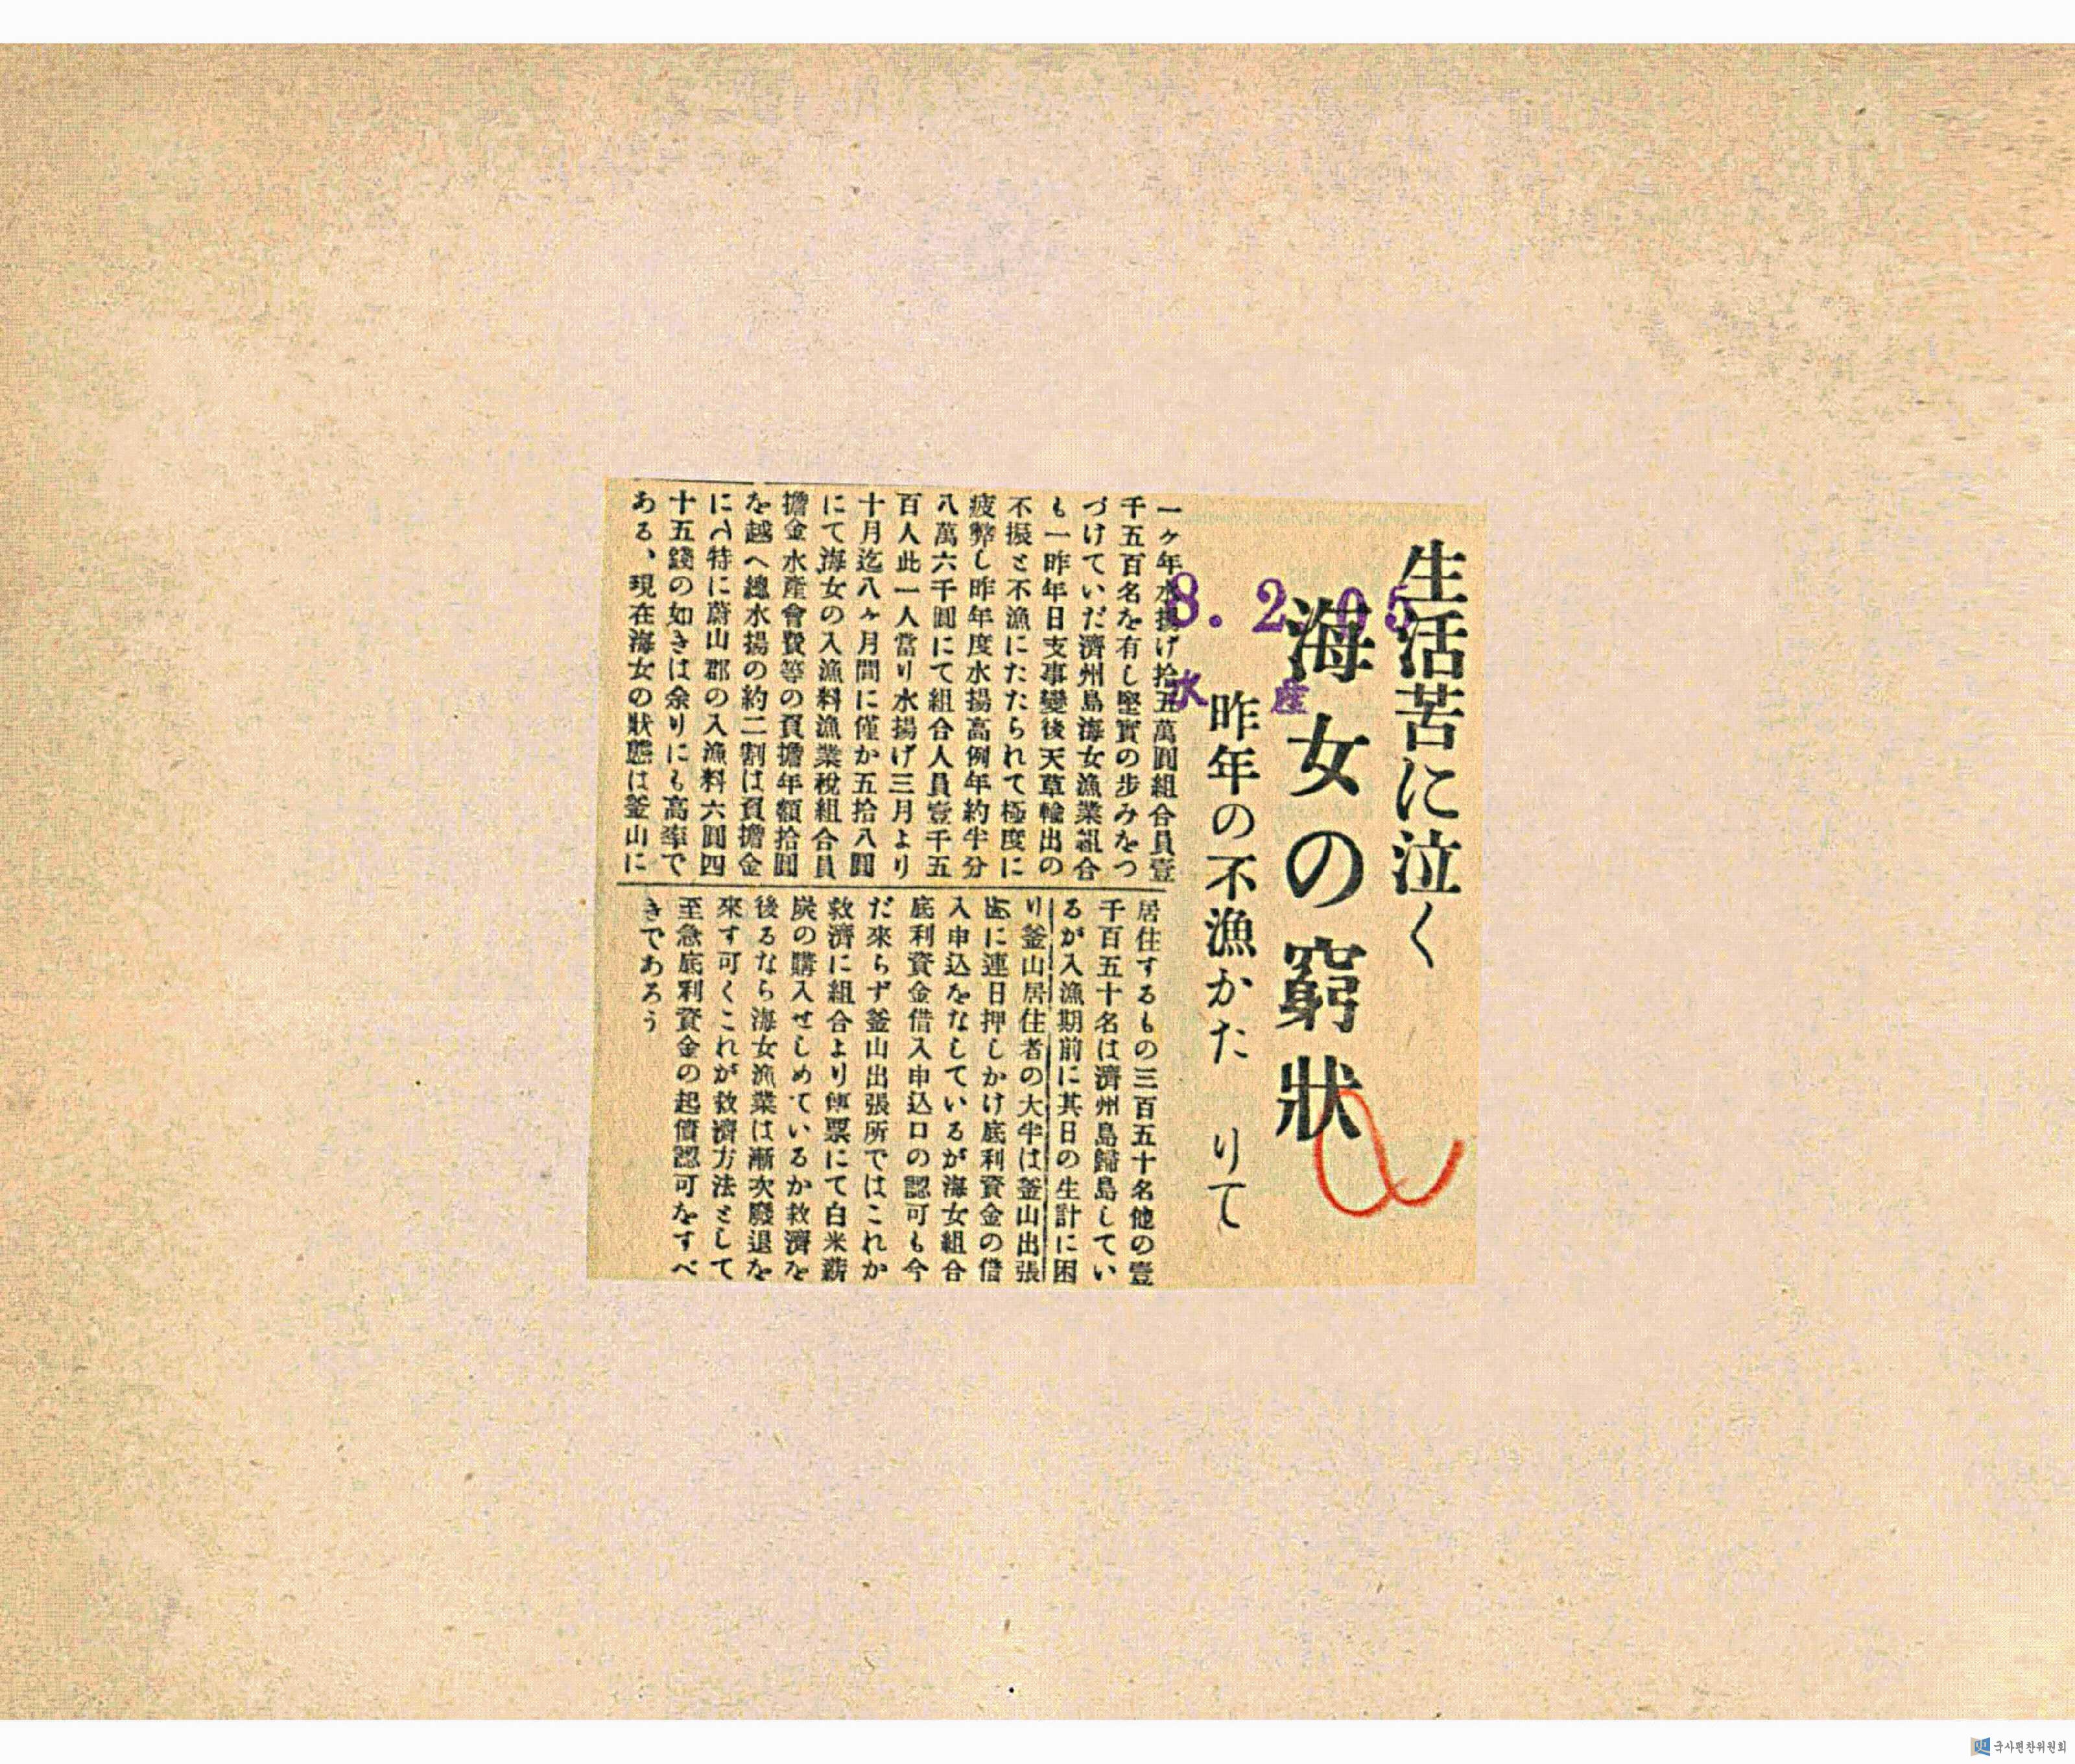 生活苦に泣く
海女の窮狀
昨年の不漁かたりて
8.2.05
水産
一ヶ年水揚げ拾五萬圓組合員壹
千五百名を有し堅實の歩みをつ
づけていだ濟州島海女漁業組合
も一昨年日支事變後天草輸出の
不振と不漁にたたられて極度に
疲弊し昨年度水揚高例年約半分
八萬六千圓にて組合人員壹千五
百人此一人當り水揚げ三月より
十月迄八ヶ月間に僅か五拾八圓
にて海女の入漁料漁業稅組合員
擔金水産會費等の負擔年額拾圓
を越へ總水揚の約二割は負擔金
にへ特に蔚山郡の入漁料六圓四
十五錢の如きは余りにも高率で
ある、現在海女の狀態は釜山に
居住するもの三百五十名他の壹
千百五十名は濟州島歸島してい
るが入漁期前に其日の生計に困
り釜山居住者の大半は釜山出張
に連日押しかけ底利資金の借
入申込をなしているが海女組合
底利資金借入申込口の認可も今
だ來らず釜山出張所ではこれか
救濟に組合より傳票にて白米薪
炭の購入せしめているか救濟を
後るなら海女漁業は漸次廢退を
來す可くこれが救濟方法として
至急底利資金の起債認可をすべ
きであろう
국사편찬위원회